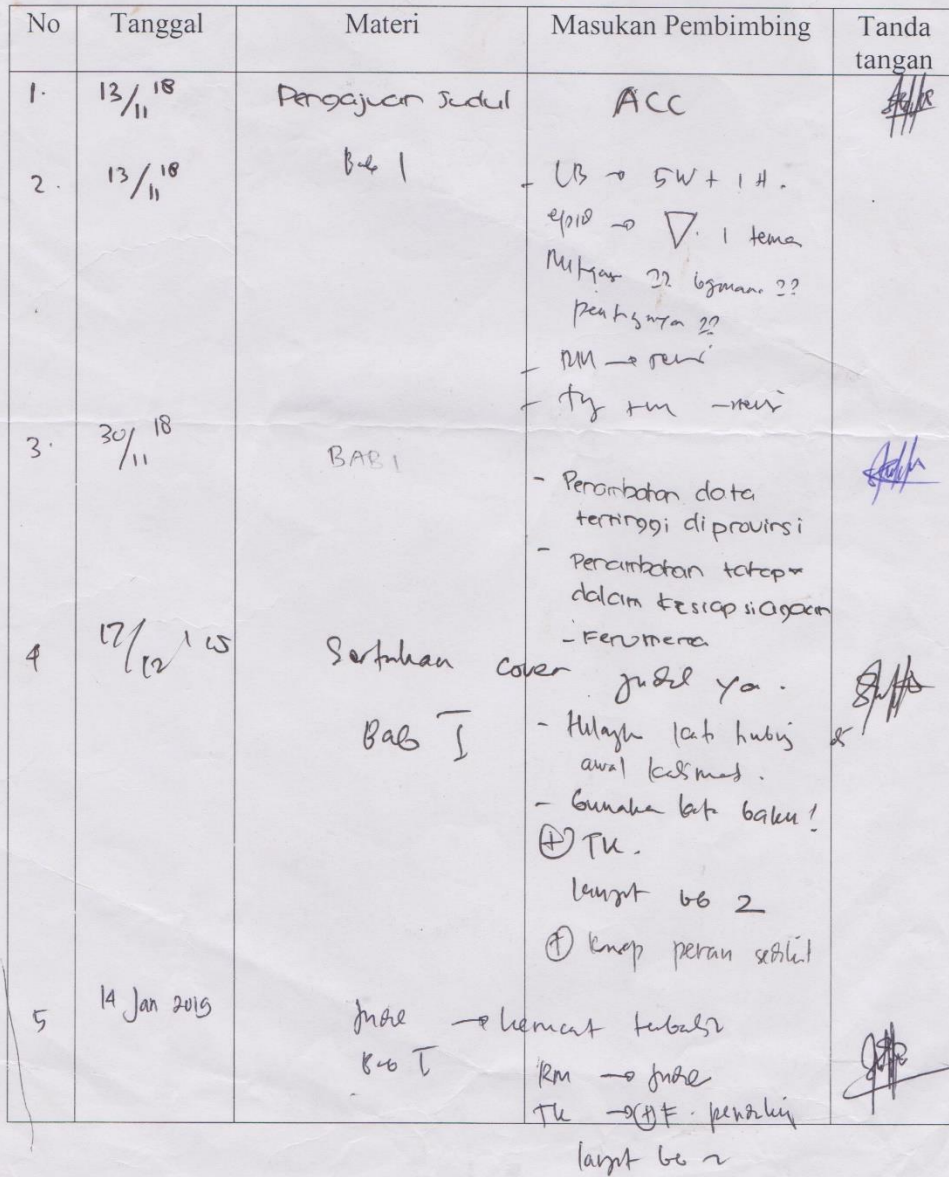 No Tanggal Materi Masukan Pembimbing Tanda tangan
1. 13/11 18 Pengajuan Judul ACC
2. 13/11 18 Bab I
- LB → 5W + 1H.
epid → ▽. 1 tema
?? bgmana ??
pentingnya ??
- RM → revisi
- revisi
3. 30/11 18 BAB I
- Penambahan data
tertinggi diprovinsi
- Penambahan
dalam kesiapsiagaan
- Fenomena
4 17/12 Sertakan cover judul ya.
Bab I
- hubung
awal kalimat.
- Gunakan kata baku!
⊕ TK.
lanjut bb 2
⊕ peran
5 14 Jan 2019 Judul →
Bab I
RM → Judul
TK → ⊕ F.
lanjut bb 2